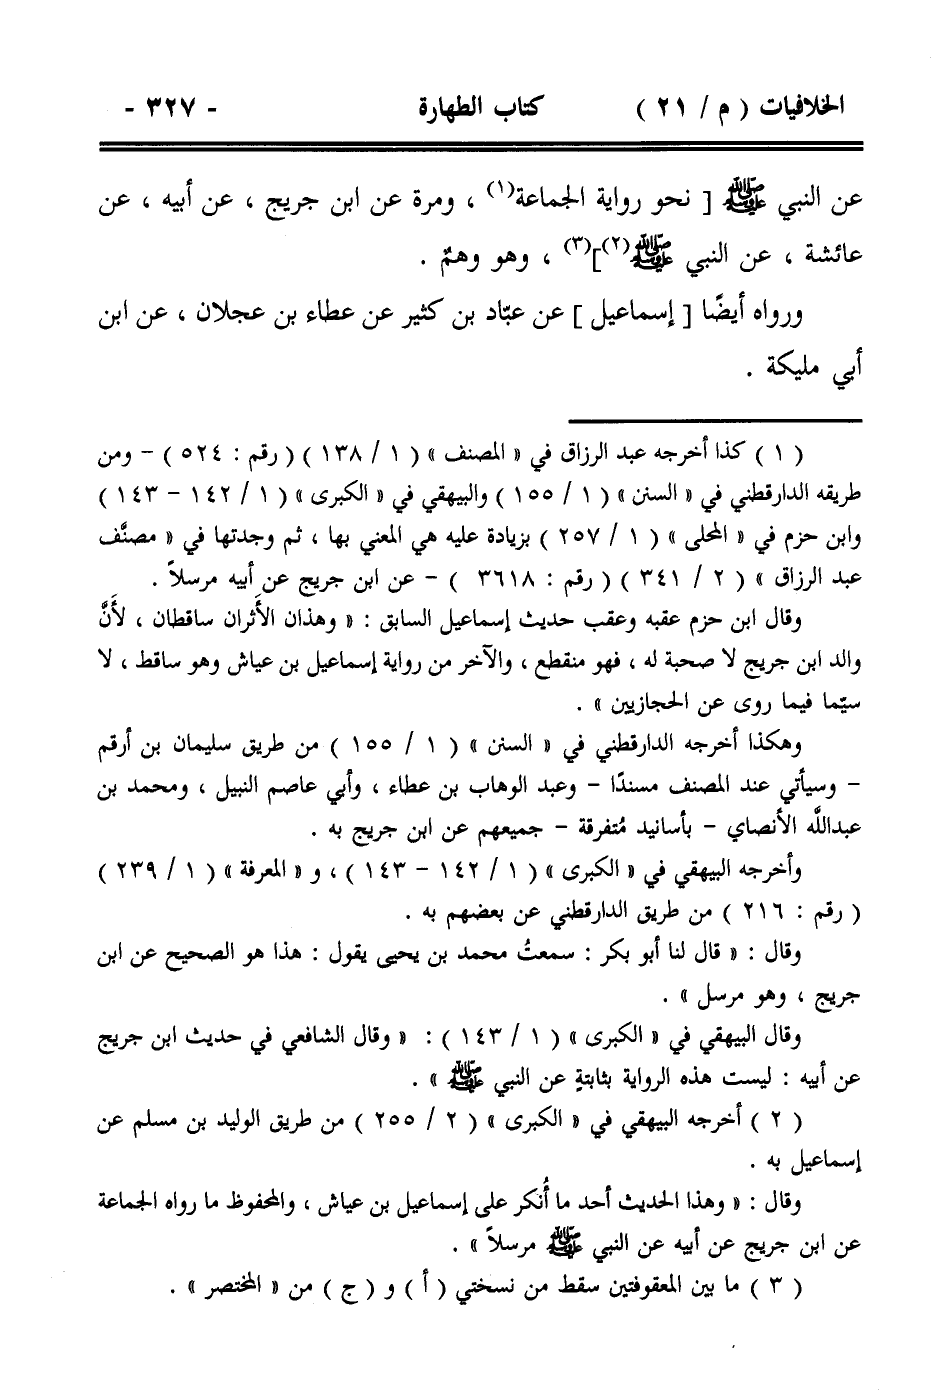 الخلافيات ( م / ٢١ ) كتاب الطهارة - ٣٢٧ -
عن النبي ﷺ [ نحو رواية الجماعة(١) ، ومرة عن ابن جريج ، عن أبيه ، عن
عائشة ، عن النبي ﷺ(٢)](٣) ، وهو وهمٌ .
ورواه أيضًا [ إسماعيل ] عن عبّاد بن كثير عن عطاء بن عجلان ، عن ابن
أبي مليكة .
( ١ ) كذا أخرجه عبد الرزاق في « المصنف » ( ١ / ١٣٨ ) ( رقم : ٥٢٤ ) - ومن
طريقه الدارقطني في « السنن » ( ١ / ١٥٥ ) والبيهقي في « الكبرى » ( ١ / ١٤٢ - ١٤٣ )
وابن حزم في « المحلى » ( ١ / ٢٥٧ ) بزيادة عليه هي المعني بها ، ثم وجدتها في « مصنَّف
عبد الرزاق » ( ٢ / ٣٤١ ) ( رقم : ٣٦١٨ ) - عن ابن جريج عن أبيه مرسلاً .
وقال ابن حزم عقبه وعقب حديث إسماعيل السابق : « وهذان الأَثران ساقطان ، لأَنَّ
والد ابن جريج لا صحبة له ، فهو منقطع ، والآخر من رواية إسماعيل بن عياش وهو ساقط ، لا
سيّما فيما روى عن الحجازيين » .
وهكذا أخرجه الدارقطني في « السنن » ( ١ / ١٥٥ ) من طريق سليمان بن أرقم
- وسيأتي عند المصنف مسندًا - وعبد الوهاب بن عطاء ، وأبي عاصم النبيل ، ومحمد بن
عبداللَّه الأنصاي - بأسانيد مُتفرقة - جميعهم عن ابن جريج به .
وأخرجه البيهقي في « الكبرى » ( ١ / ١٤٢ - ١٤٣ ) ، و « المعرفة » ( ١ / ٢٣٩ )
( رقم : ٢١٦ ) من طريق الدارقطني عن بعضهم به .
وقال : « قال لنا أبو بكر : سمعتُ محمد بن يحيى يقول : هذا هو الصحيح عن ابن
جريج ، وهو مرسل » .
وقال البيهقي في « الكبرى » ( ١ / ١٤٣ ) : « وقال الشافعي في حديث ابن جريج
عن أبيه : ليست هذه الرواية بثابتةٍ عن النبي ﷺ » .
( ٢ ) أخرجه البيهقي في « الكبرى » ( ٢ / ٢٥٥ ) من طريق الوليد بن مسلم عن
إسماعيل به .
وقال : « وهذا الحديث أحد ما أُنكر على إسماعيل بن عياش ، والمحفوظ ما رواه الجماعة
عن ابن جريج عن أبيه عن النبي ﷺ مرسلاً » .
( ٣ ) ما بين المعقوفتين سقط من نسختي ( أ ) و ( ج ) من « المختصر » .